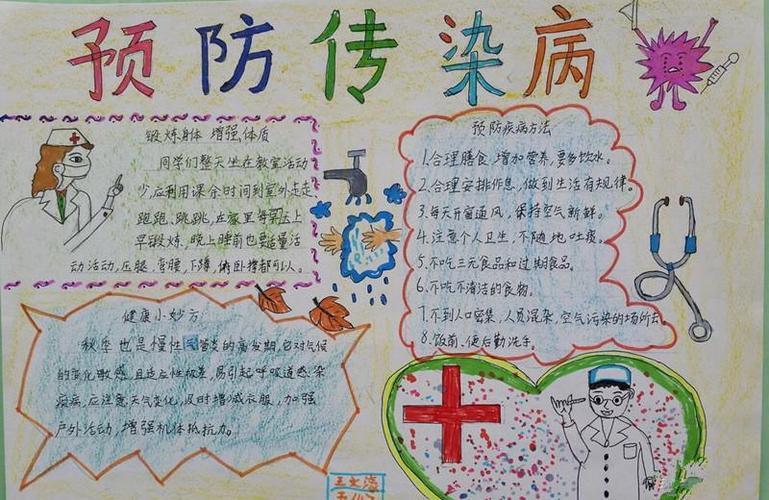 预防传染病
锻炼身体 增强体质
同学们整天坐在教室活动
少,应利用课余时间到室外走走、
跑跑、跳跳,在家里每天早上
早锻炼,晚上睡前也要适量活
动活动,压腿、弯腰、下蹲、俯卧撑都可以。
预防疾病方法
1.合理膳食,增加营养,要多饮水。
2.合理安排作息,做到生活有规律。
3.每天开窗通风,保持空气新鲜。
4.注意个人卫生,不随地吐痰。
5.不吃三无食品和过期食品。
6.不吃不清洁的食物。
7.不到人口密集,人员混杂,空气污染的场所去。
8.饭前、便后勤洗手。
健康小妙方
秋季也是慢性气管炎的高发期,它对气候
的变化敏感,且适应性极差,易引起呼吸道感染
疾病,应注意天气变化,及时增减衣服,加强
户外活动,增强机体抵抗力。